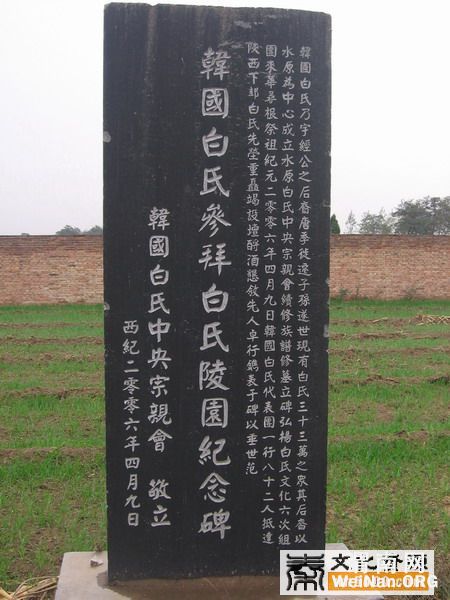 韓國白氏乃宇經公之后裔唐季徙遷子孫遂世現有白氏三十三萬之眾其后裔以
水原為中心成立水原白氏中央宗親會續修族譜修墓立碑弘楊白氏文化六次組
團來華尋根祭祖紀元二零零六年四月九日韓國白氏代表團一行八十二人抵達
陝西下邽白氏先塋重矗竭設壇酹酒懇敘先人卓行鐫表于碑以垂世范
韓國白氏參拜白氏陵園紀念碑
韓國白氏中央宗親會 敬立
西紀二零零六年四月九日
WeiNan.ORG